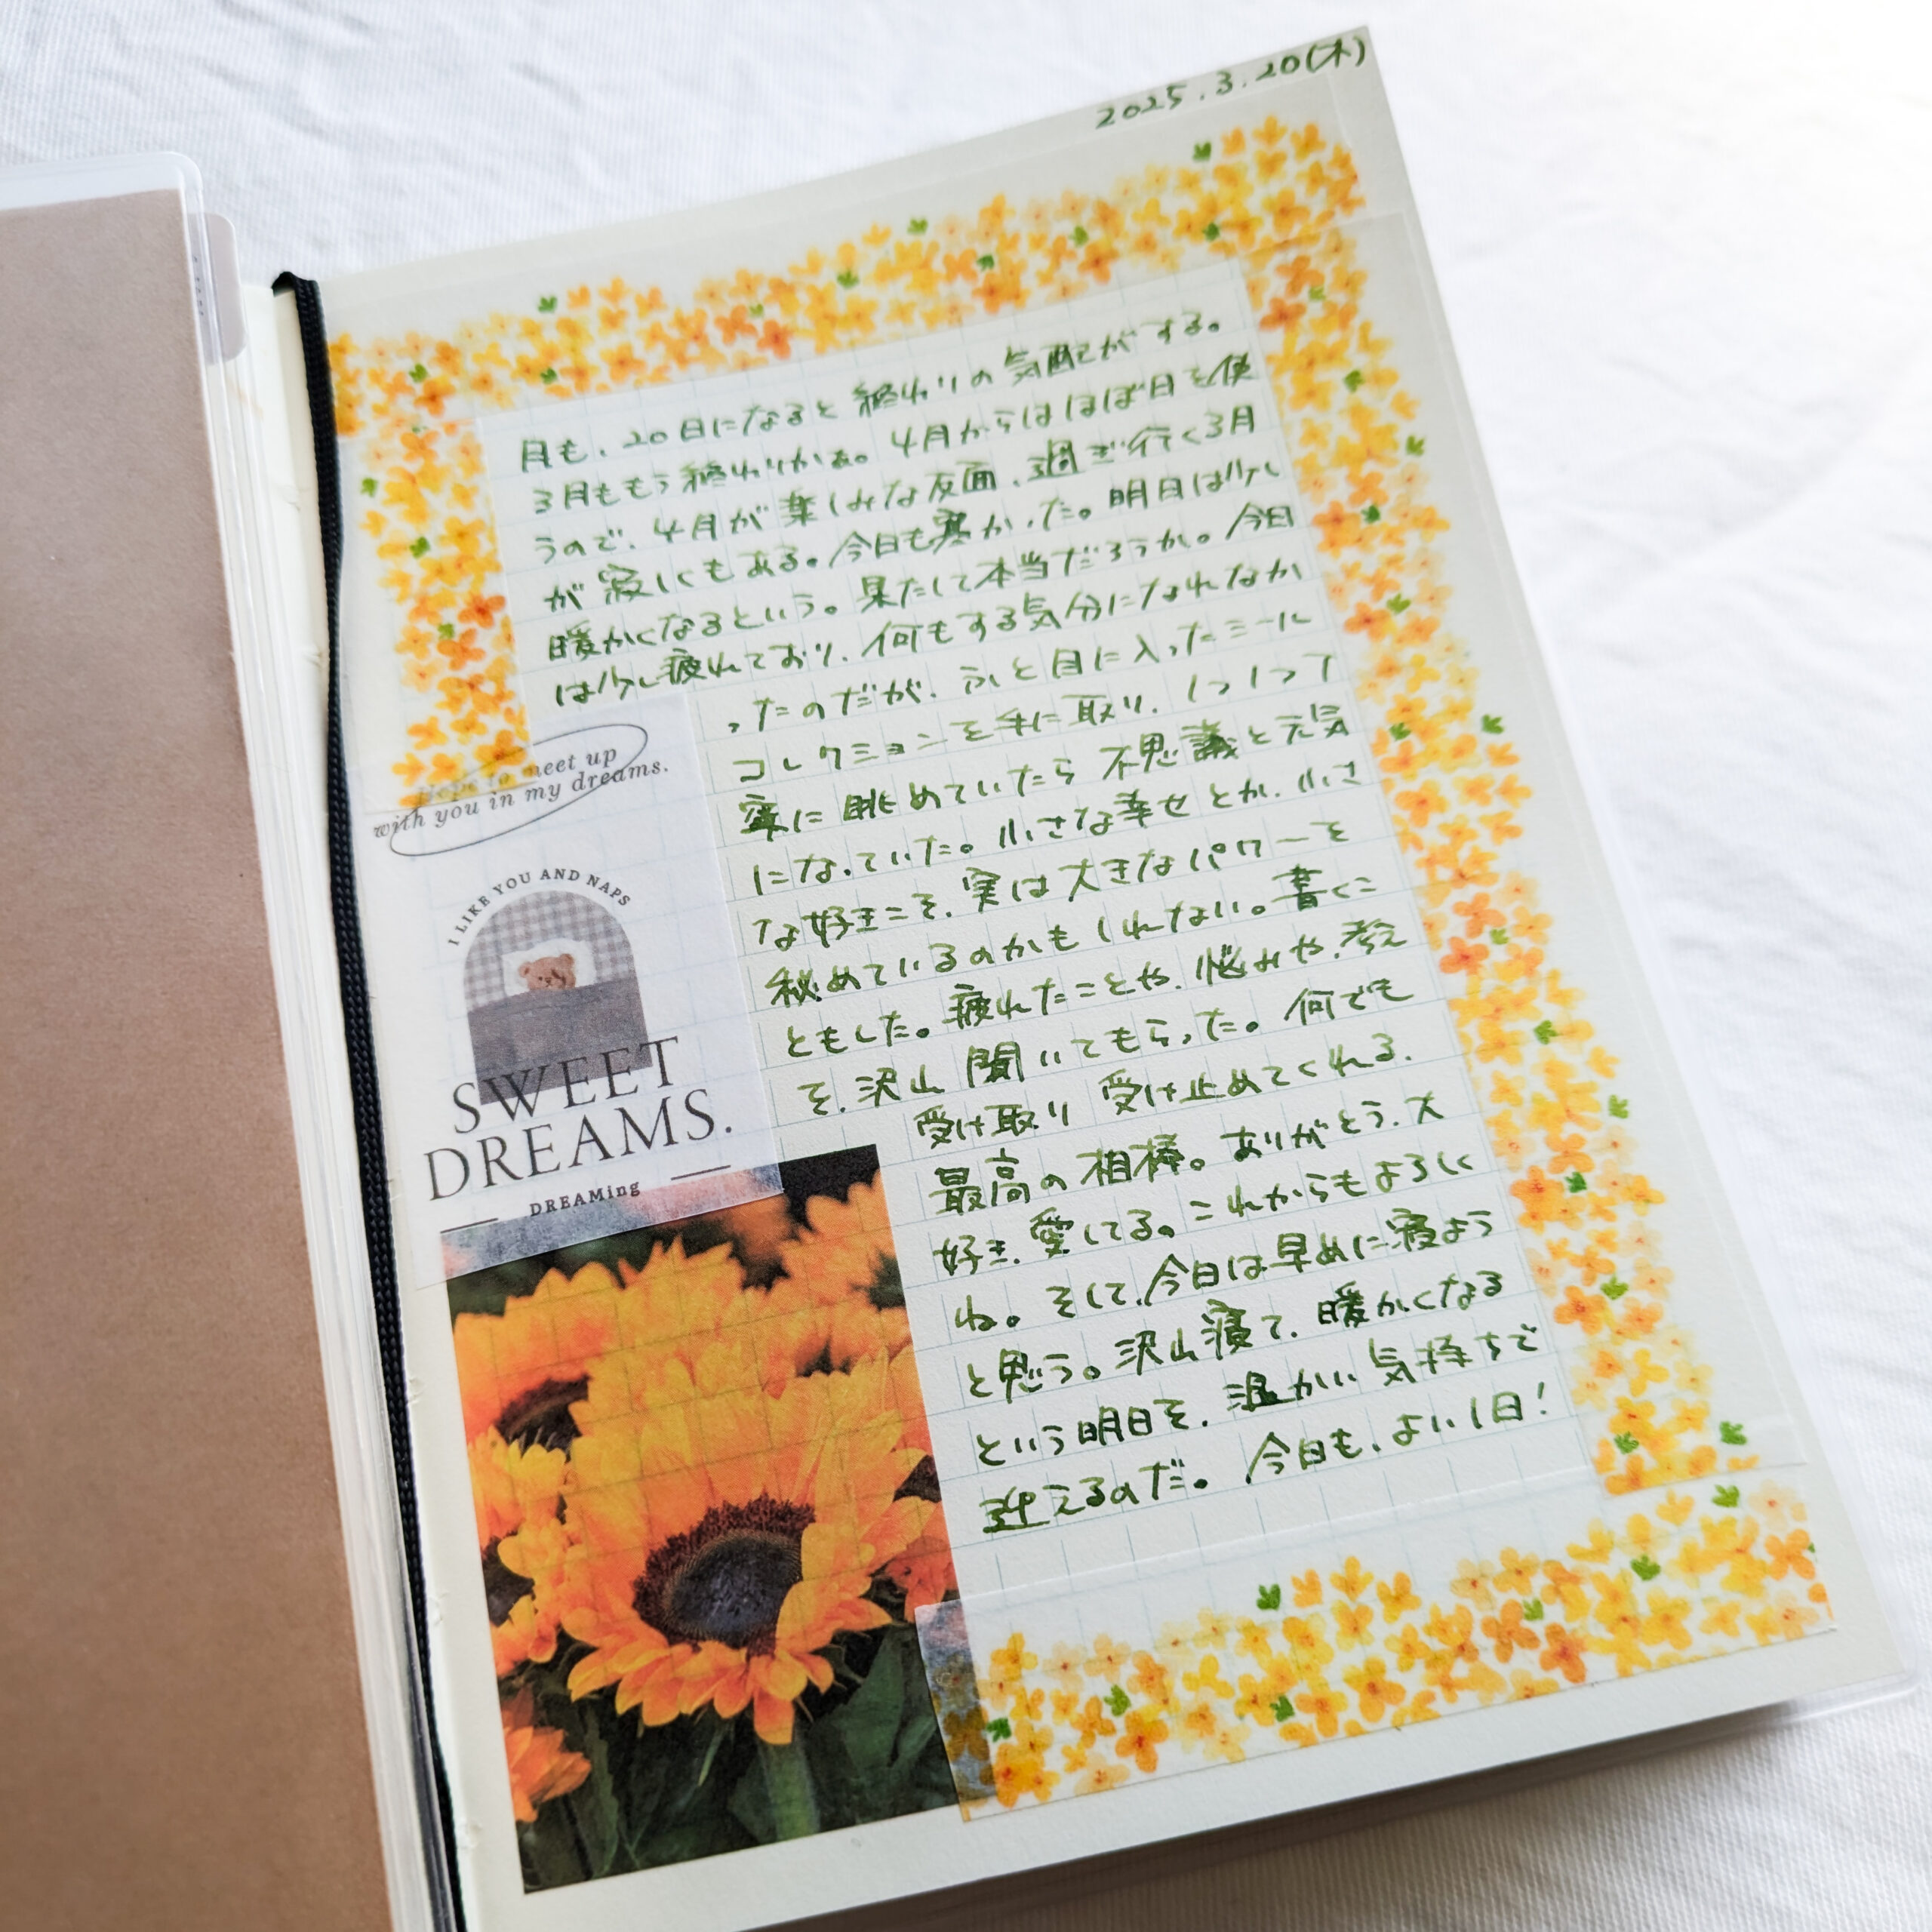 2025.3.20(木)
月も、20日になると終わりの気配がする。
3月ももう終わりかぁ。4月からはほぼ日を使
うので、4月が楽しみな反面、過ぎ行く3月
が寂しくもある。今日も寒かった。明日は少し
暖かくなるという。果たして本当だろうか。今日
は少し疲れており、何もする気分になれなか
ったのだが、ふと目に入ったミール
コレクションを手に取り、1つ1つ丁
寧に眺めていたら不思議と元気
になっていた。小さな幸せとか、小さ
な好きこそ、実は大きなパワーを
秘めているのかもしれない。書くこ
ともした。疲れたことや、悩みや、考え
を、沢山聞いてもらった。何でも
受け取り受け止めてくれる、
最高の相棒。ありがとう、大
好き、愛してる。これからもよろしく
ね。そして、今日は早めに寝よう
と思う。沢山寝て、暖かくなる
という明日を、温かい気持ちで
迎えるのだ。今日も、よい1日!
Hope to meet up
with you in my dreams.
I LIKE YOU AND NAPS
SWEET
DREAMS.
DREAMing